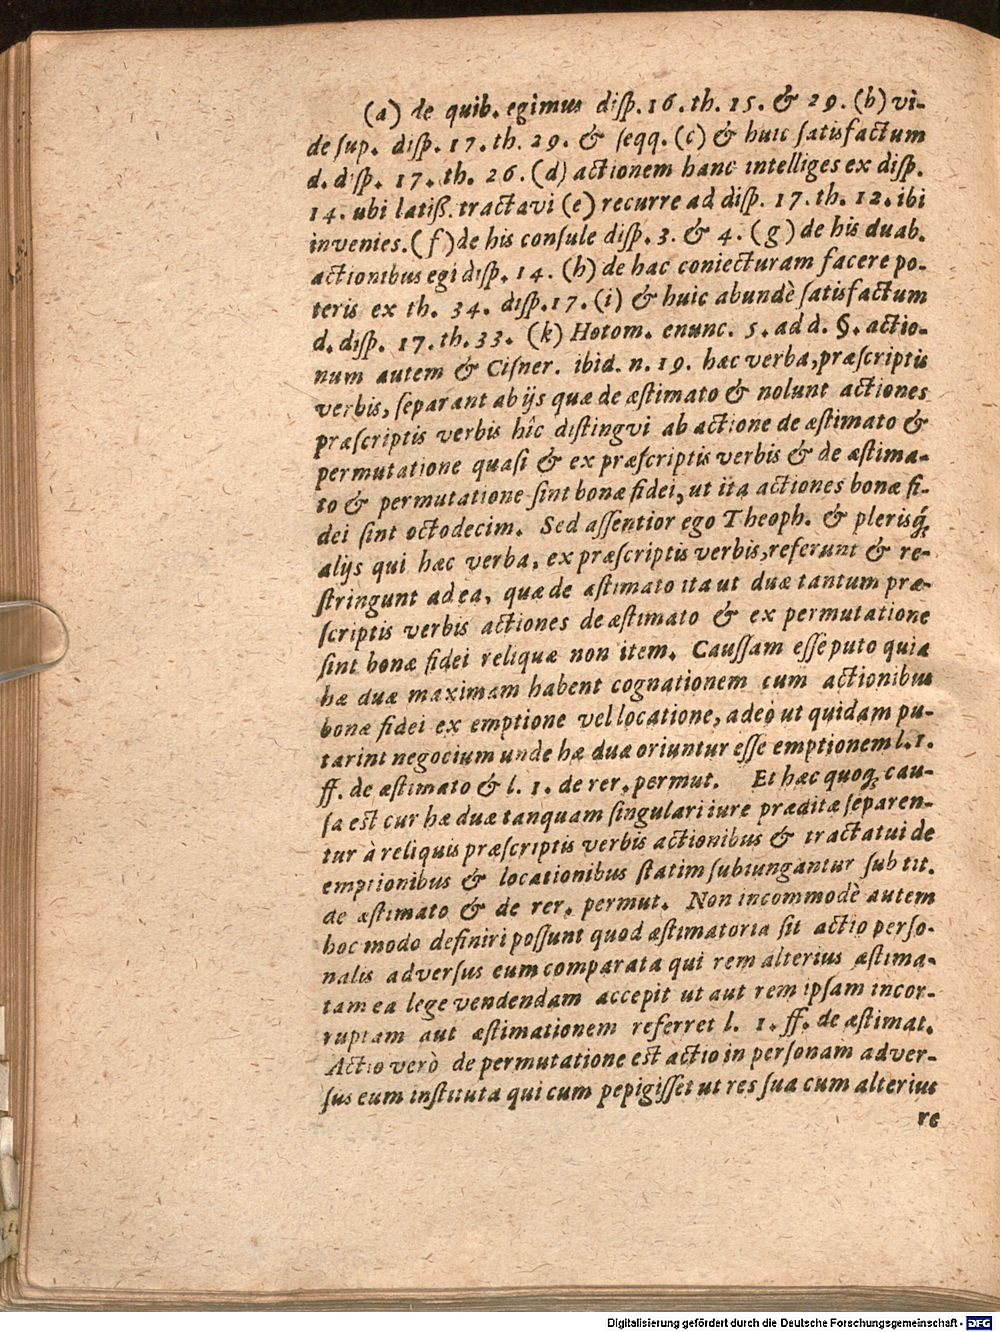 (a) de quib. egimus disp. 16. th. 15. & 29. (b) vi-
de sup. disp. 17. th. 29. & seqq. (c) & huic satisfactum
d. disp. 17. th. 26. (d) actionem hanc intelliges ex disp.
14. ubi latiß. tractavi (e) recurre ad disp. 17. th. 12. ibi
invenies. (f) de his consule disp. 3. & 4. (g) de his duab.
actionibus egi disp. 14. (h) de hac coniecturam facere po-
teris ex th. 34. disp. 17. (i) & huic abundè satisfactum
d. disp. 17. th. 33. (k) Hotom. enunc. 5. ad d. §. actio-
num autem & Cisner. ibid. n. 19. hæc verba, præscriptis
verbis, separant ab ijs quæ de æstimato & nolunt actiones
præscriptis verbis hîc distingvi ab actione de æstimato &
permutatione quasi & ex præscriptis verbis & de æstima-
to & permutatione sint bonæ fidei, ut ita actiones bonæ fi-
dei sint octodecim. Sed assentior ego Theoph. & plerisq́;
alijs qui hæc verba, ex præscriptis verbis, referunt & re-
stringunt ad ea, quæ de æstimato ita ut duæ tantum præ-
scriptis verbis actiones de æstimato & ex permutatione
sint bonæ fidei reliquæ non item. Caussam esse puto quia
hæ duæ maximam habent cognationem cum actionibus
bonæ fidei ex emptione vel locatione, adeò ut quidam pu-
tarint negocium unde hæ duæ oriuntur esse emptionem l. 1.
ff. de æstimato & l. 1. de rer. permut. Et hæc quoq; cau-
sa est cur hæ duæ tanquam singulari iure præditæ separen-
tur à reliquis præscriptis verbis actionibus & tractatui de
emptionibus & locationibus statim subiungantur sub tit.
de æstimato & de rer. permut. Non incommodè autem
hoc modo definiri possunt quod æstimatoria sit actio perso-
nalis adversus eum comparata qui rem alterius æstima-
tam ea lege vendendam accepit ut aut rem ipsam incor-
ruptam aut æstimationem referret l. 1. ff. de æstimat.
Actio verò de permutatione est actio in personam adver-
sus eum instituta qui cum pepigisset ut res sua cum alterius
re
Digitalisierung gefördert durch die Deutsche Forschungsgemeinschaft - DFG